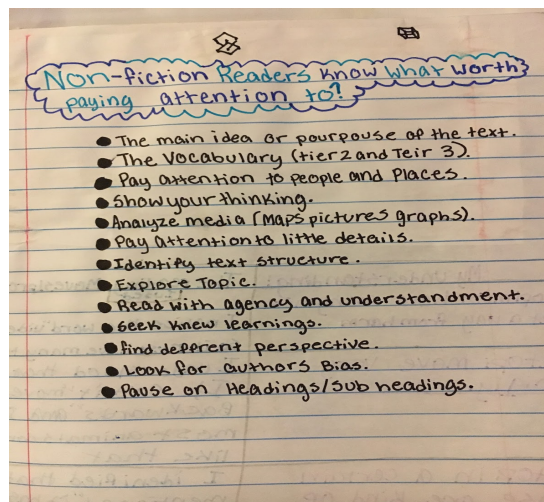 Non-fiction Readers know what worth
paying attention to?
• The main idea or pourpouse of the text.
• The Vocabulary (tier 2 and Teir 3).
• Pay attention to people and Places.
• Show your thinking.
• Analyze media (Maps pictures graphs).
• Pay attention to little details.
• Identify text structure.
• Explore Topic.
• Read with agency and understandment.
• Seek knew learnings.
• find defferent perspective.
• Look for authors Bias.
• Pause on Headings/sub headings.